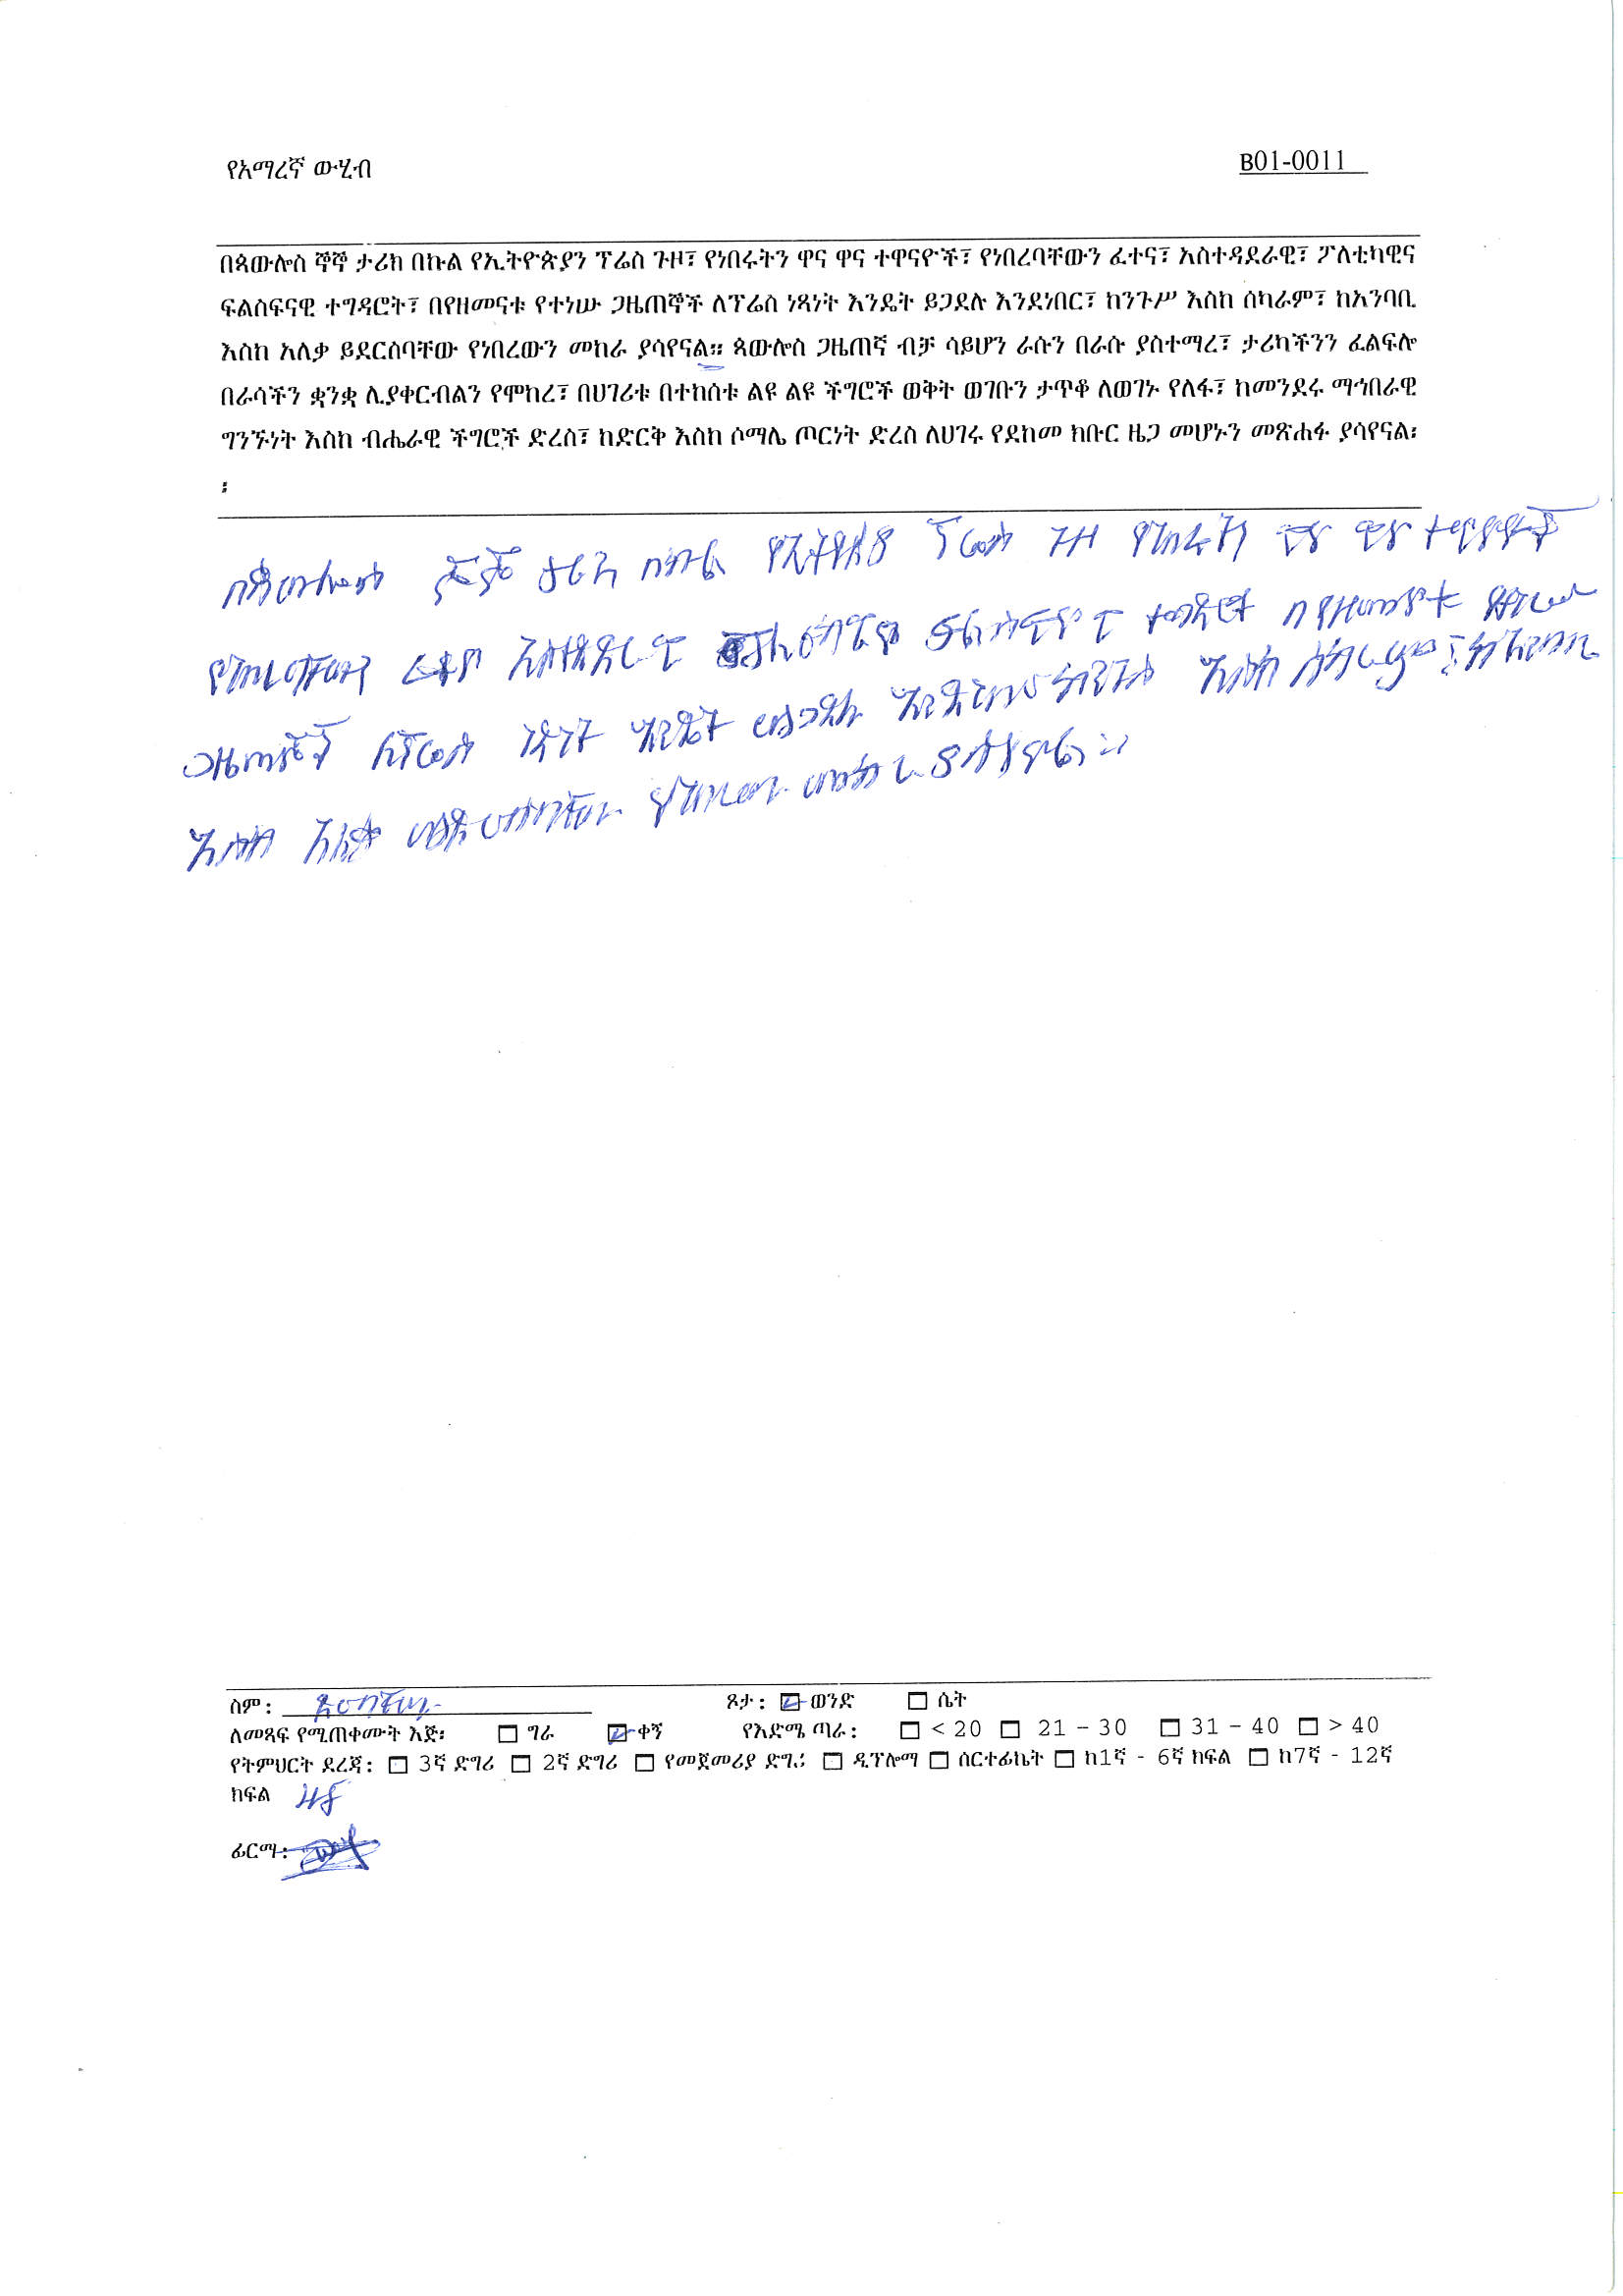 የአማረኛ ውሂብ
B01-0011
በጳውሎስ ኞኞ ታሪክ በኩል የኢትዮጵያን ፕሬስ ጉዞ፣ የነበሩትን ዋና ዋና ተዋናዮች፣ የነበረባቸውን ፈተና፣ አስተዳደራዊ፣ ፖለቲካዊና
ፍልስፍናዊ ተግዳሮት፣ በየዘመናቱ የተነሡ ጋዜጠኞች ለፕሬስ ነጻነት እንዴት ይጋደሉ እንደነበር፣ ከንጉሥ እስከ ሰካራም፣ ከአንባቢ
እስከ አለቃ ይደርስባቸው የነበረውን መከራ ያሳየናል። ጳውሎስ ጋዜጠኛ ብቻ ሳይሆን ራሱን በራሱ ያስተማረ፣ ታሪካችንን ፈልፍሎ
በራሳችን ቋንቋ ሊያቀርብልን የሞከረ፣ በሀገሪቱ በተከሰቱ ልዩ ልዩ ችግሮች ወቅት ወገቡን ታጥቆ ለወገኑ የለፋ፣ ከመንደሩ ማኅበራዊ
ግንኙነት እስከ ብሔራዊ ችግሮች ድረስ፣ ከድርቅ እስከ ሶማሌ ጦርነት ድረስ ለሀገሩ የደከመ ክቡር ዜጋ መሆኑን መጽሐፉ ያሳየናል፡
፡
በጳውሎስ ኞኞ ታሪክ በኩል የኢትዮጵያ ፕሬስ ጉዞ የነበሩትን ዋና ዋና ተዋናዮች
የነበረባቸውን ፈተና አስተዳደራዊ ፖለቲካዊና ፍልስፍናዊ ተግዳሮት በየዘመናቱ
ጋዜጠኞች ለፕሬስ ነጻነት እንዴት ይጋደሉ እንደነበር ከንጉሥ እስከ ሰካራም፣
እስከ አለቃ ይደርስባቸው የነበረውን መከራ ያሳየናል።
ስም: ጾታ: ወንድ ሴት
ለመጻፍ የሚጠቀሙት እጅ፡ ግራ ቀኝ የእድሜ ጣራ: < 20 21 – 30 31 – 40 > 40
የትምህርት ደረጃ: 3ኛ ድግሪ 2ኛ ድግሪ የመጀመሪያ ድግሪ ዲፕሎማ ሰርተፊኬት ከ1ኛ - 6ኛ ክፍል ከ7ኛ - 12ኛ
ክፍል
ፊርማ: